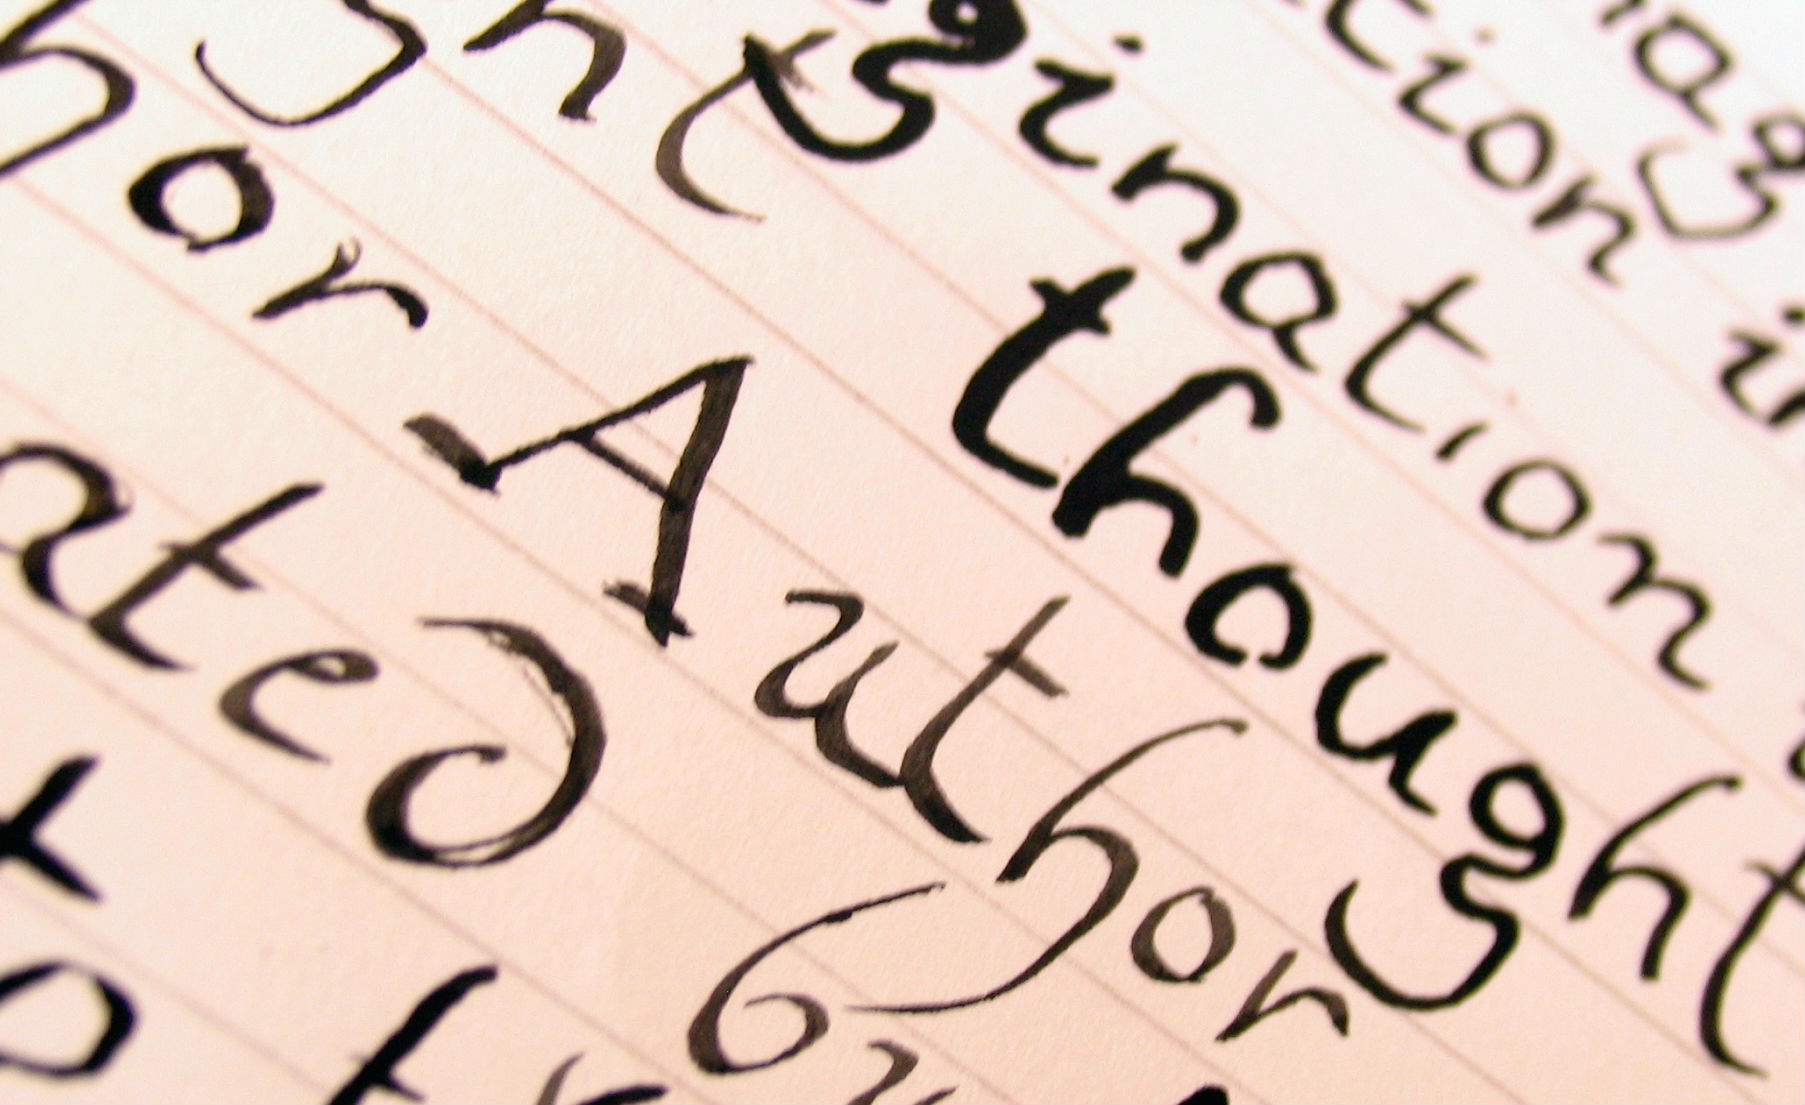 ag
tion in
gination
ght thought
hor Author
ated